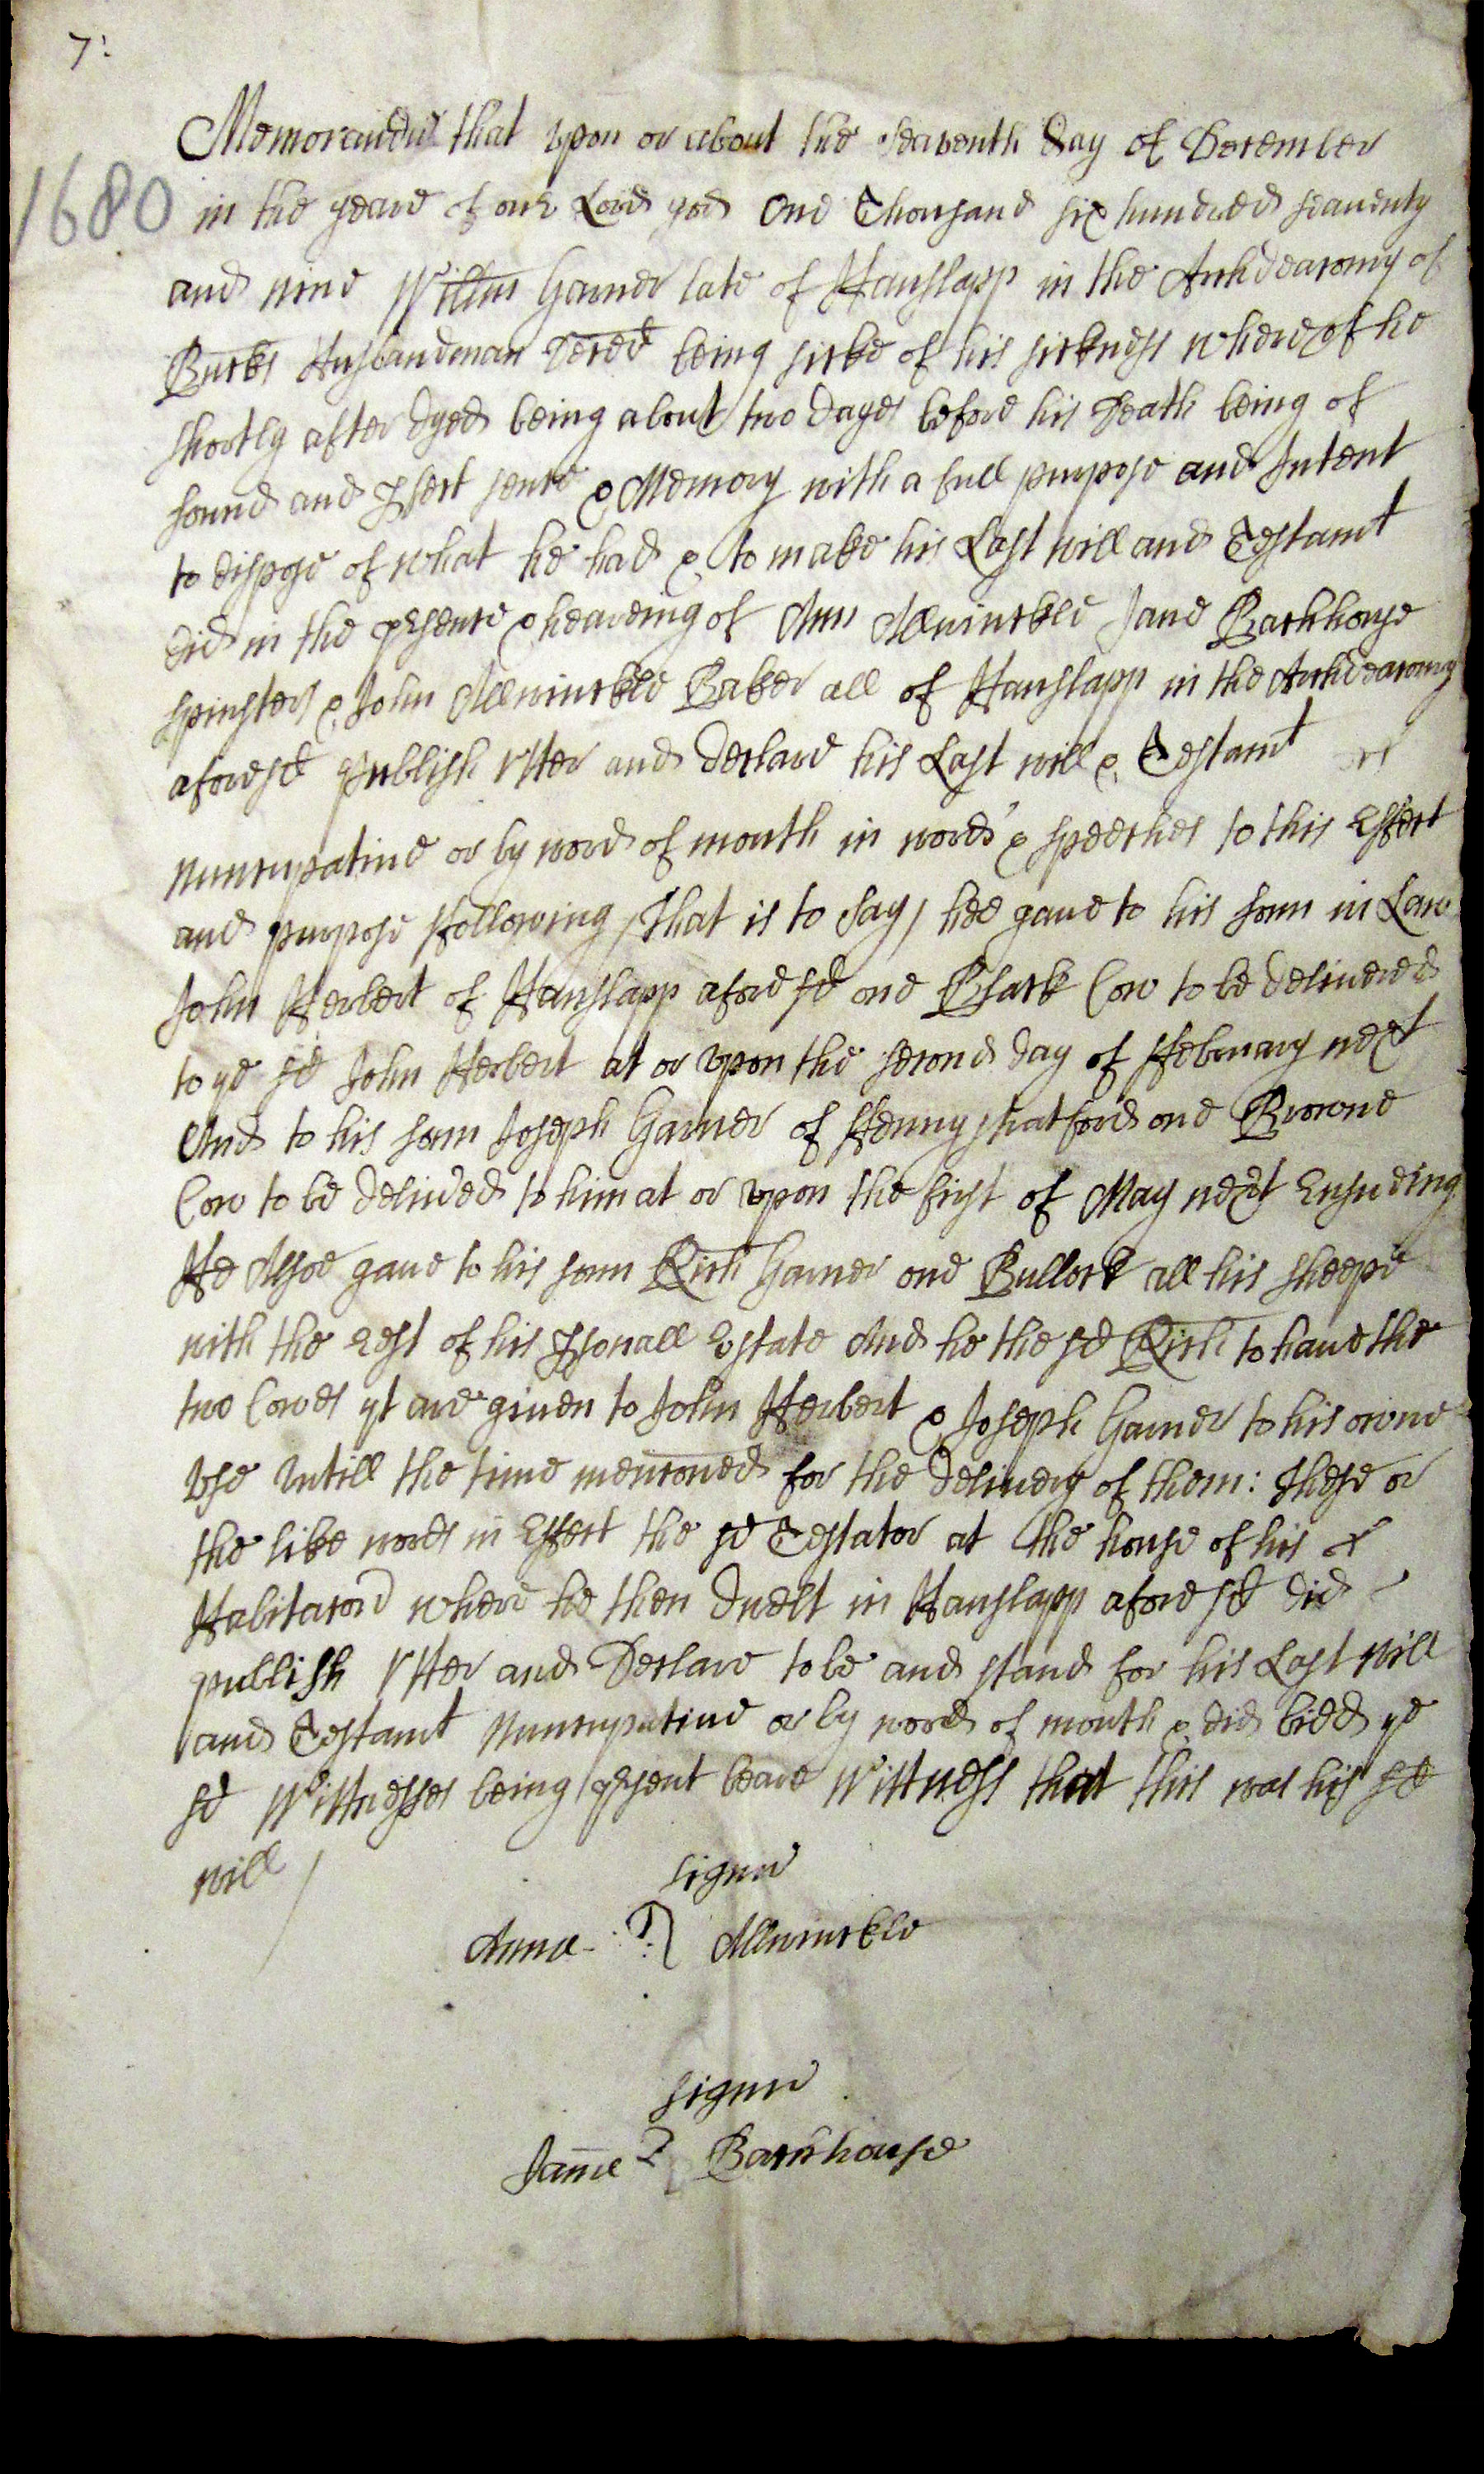 7:
Memorandu that vpon or about the seaventh day of December
1680
in the yeare of our Lord god One Thousand six hundred seaventy
and nine Willm Garner late of Hanslapp in the Archdeaconry of
Bucks Husbandman deced being sicke of his sickness whereof he
shortly after dyed being about two dayes before his death being of
sound and pfect sence & Memory with a full purpose and Intent
to dispose of what he had & to make his Last will and Testamt
did in the psence & heareing of Ann Allwinckle Jane Backhouse
spinsters & John Allwinckle Baker all of Hanslapp in the Archdeaconry
aforesd publish vtter and declare his Last will & Testamt
Nuncupative or by word of mouth in words & speeches to this Effect
and purpose ffollowing / That is to say / hee gave to his sonn in Law
John Herbert of Hanslapp aforesd one Black Cow to be delivered
to ye sd John Herbert at or vpon the second day of ffebruary next
And to his sonn Joseph Garner of ffenny stratford one Browne
Cow to be delived to him at or vpon the first of May next Ensueing
He Alsoe gave to his sonn Rich Garner one Bullock all his sheepe
with the rest of his psonall Estate And he the sd Rich to have the
two Cowes yt are given to John Herbert & Joseph Garner to his owne
vse vntill the time mencioned for the delivery of them: these or
the like words in Effect the sd Testator at the house of his
Habitacon where he then dwelt in Hanslapp aforesd did
publish vtter and Declare to be and stand for his Last will
and Testamt Nuncupative or by word of mouth & did bidd ye
sd Wittnesses being psent beare Wittness that this was his sd
will /
Signu
Anna Allwinckle
Signu
Janne Backhouse